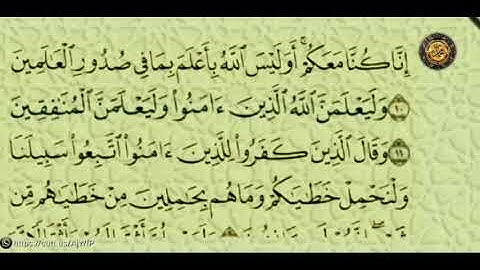 إِنَّا كُنَّا مَعَكُمْ ۚ أَوَلَيْسَ ٱللَّهُ بِأَعْلَمَ بِمَا فِى صُدُورِ ٱلْعَٰلَمِينَ
١٠ وَلَيَعْلَمَنَّ ٱللَّهُ ٱلَّذِينَ ءَامَنُوا۟ وَلَيَعْلَمَنَّ ٱلْمُنَٰفِقِينَ
١١ وَقَالَ ٱلَّذِينَ كَفَرُوا۟ لِلَّذِينَ ءَامَنُوا۟ ٱتَّبِعُوا۟ سَبِيلَنَا
وَلْنَحْمِلْ خَطَٰيَٰكُمْ وَمَا هُم بِحَٰمِلِينَ مِنْ خَطَٰيَٰهُم مِّن